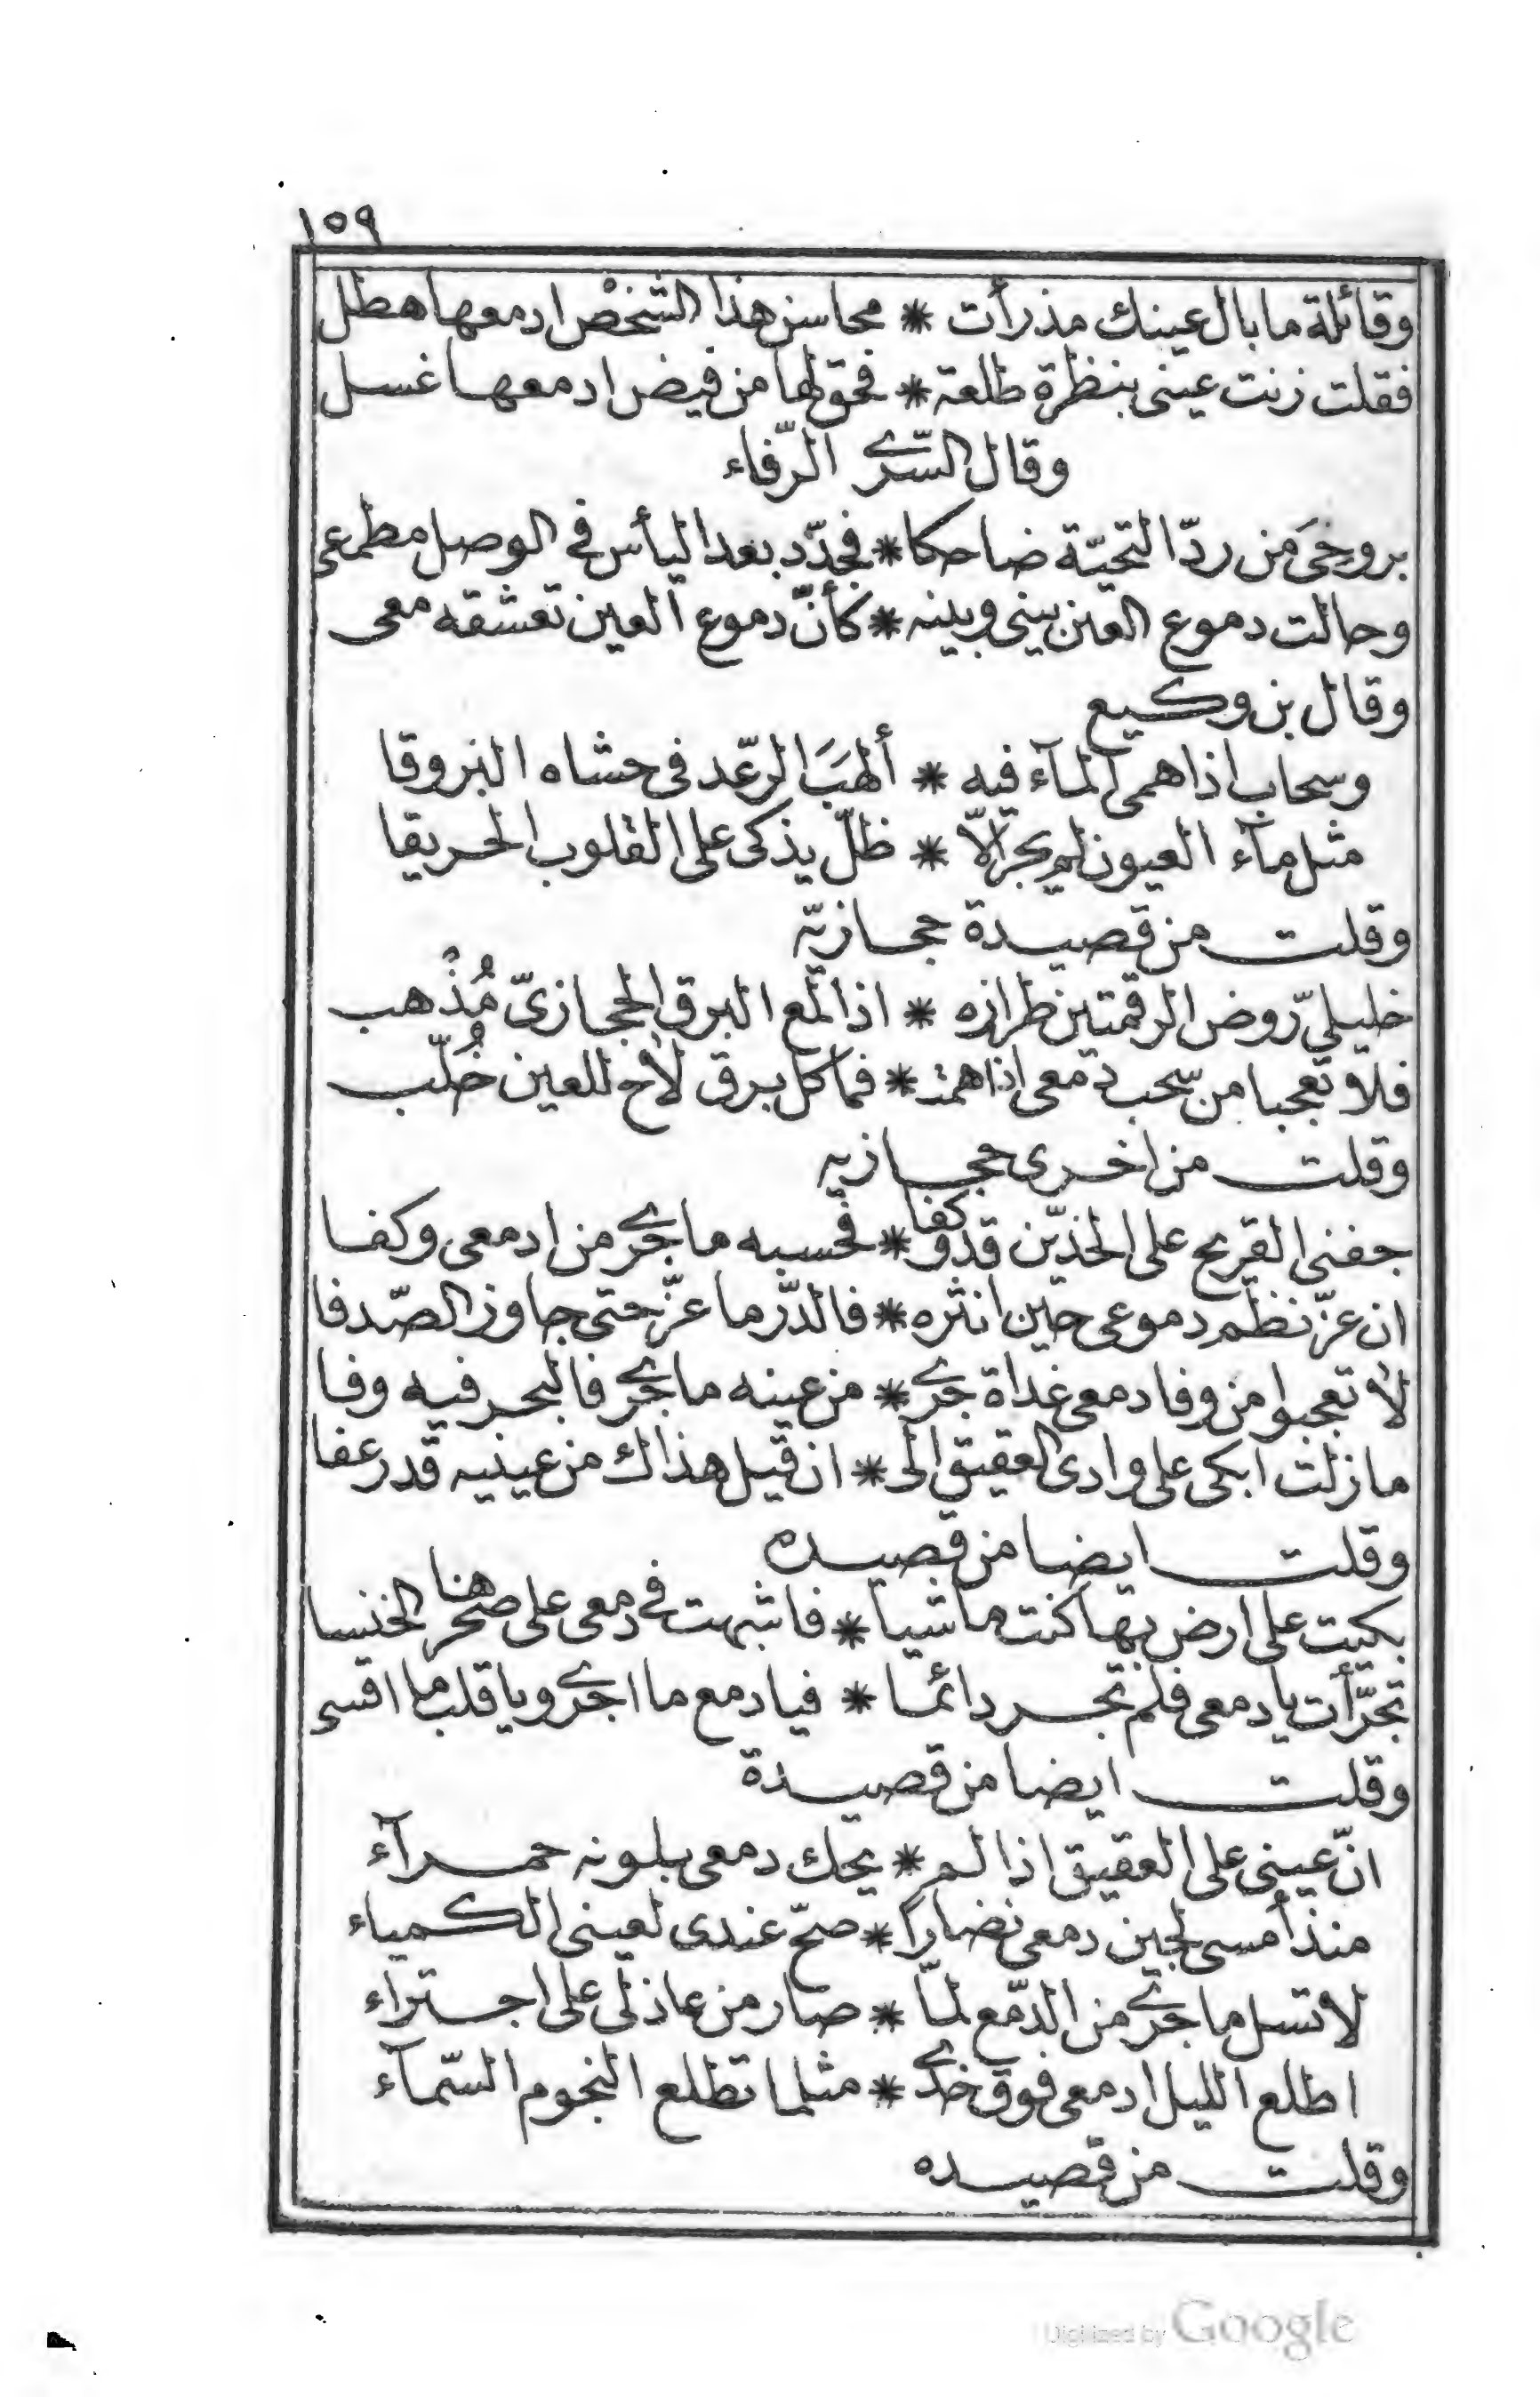 ١٥٩
وقائلة ما بال عينك مذ رأت * محاسن هذا الشخص ادمعها هطل
فقلت زنت عينى بنظرة طلعة * فحق لها من فيض ادمعها غسل
وقال السّرى الرّفاء
بروحى من ردّ التحيّة ضاحكا * فجدّد بعد اليأس فى الوصل مطمعى
وحالت دموع العين بينى وبينه * كأنّ دموع العين تعشقه معى
وقال بن وكيع
وسحاب اذا همى المآء فيه * ألهبَ الرّعد فى حشاه البروقا
مثل مآء العيون لم يجر الّا * ظلّ يذكى على القلوب الحريقا
وقلت من قصيدة حجازيّه
خليلىّ روض الرقمتين طرازه * اذا لمع البرق الحجازىّ مُذْهب
فلا تعجبا من سحب دمعى اذا همت * فما كل برق لاح للعين خُلّب
وقلت من اخرى حجازيه
جفنى القريح على الخدّين قد وكفا * فحسبه ما جرى من ادمعى وكفا
ان عزّ نظم دموعى حين انثره * فالدّر ما عزّ حتى جاوز الصّدفا
لا تعجبوا من وفا دمعى غداة جرى * من عينه ما جرى فالبحر فيه وفا
ما زلت ابكى على وادى العقيق الى * ان قيل هذاك من عينيه قد رعفا
وقلت ايضا من قصيده
بكيت على ارض بها كنت ماشيا * فاشبهت فى دمعى على صخرها الخنسا
تجرّأت يا دمعى فلم تجر دائما * فيا دمع ما اجرى ويا قلب ما اقسى
وقلت ايضا من قصيدة
انّ عينى على العقيق اذا لم * يحك دمعى بلونه حمرآء
منذ أمسى لجين دمعى نضارًا * صحّ عندى لعينى الكمياء
لا تسل ما جرى من الدّمع لمّا * صار من عاذلى على اجترآء
اطلع الليل ادمعى فوق خدّى * مثلما تطلع النجوم السّمآء
وقلت من قصيده
Digitized by Google